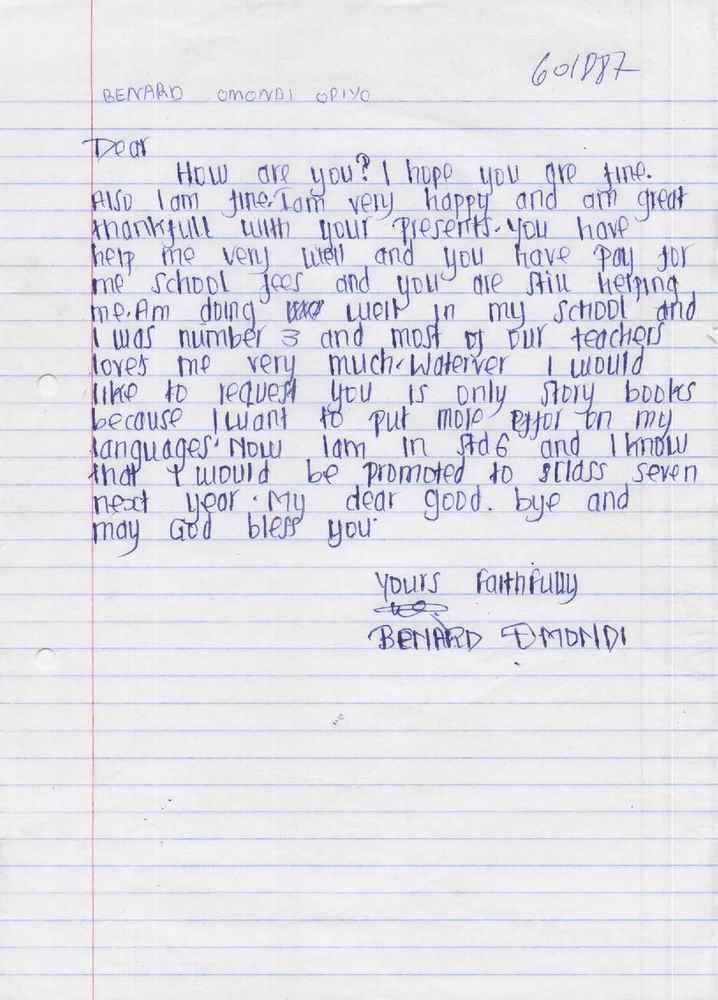 601887
BENARD OMONDI OPIYO
Dear
How are you? I hope you are fine.
Also I am fine. I am very happy and am great
thankfull with your presents. You have
help me very well and you have pay for
me school fees and you are still helping
me. Am doing well in my school and
I was number 3 and most of our teachers
loves me very much. Waterver I would
like to request you is only story books
because I want to put more effor on my
languages. Now Iam in Std 6 and I know
that I would be promoted to class seven
next year. My dear good. bye and
may God bless you.
Yours Faithfully
BENARD OMONDI